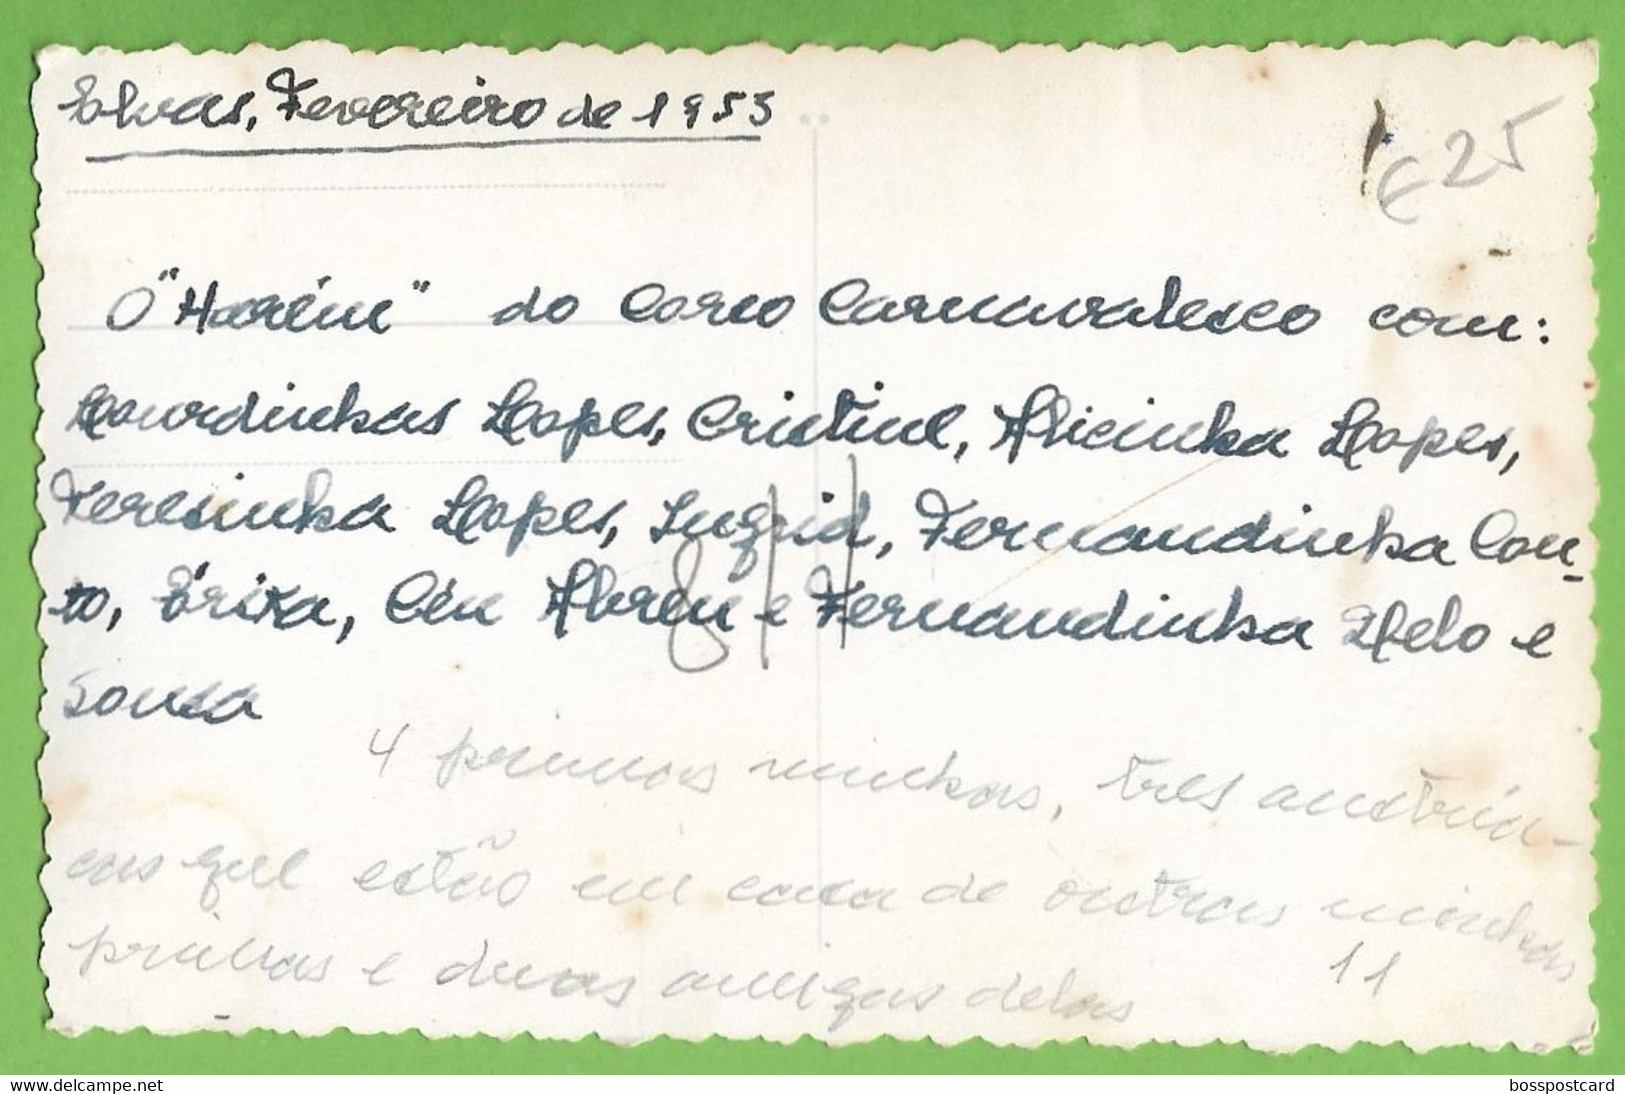 Elvas, Fevereiro de 1953
€ 25
O "Harém" do Corso Carnavalesco com:
Lourdinhas Lopes, Cristine, Alicinha Lopes,
Teresinha Lopes, Ingrid, Fernandinha Cou-
to, Érika, Céu Abreu e Fernandinha Melo e
Sousa
4 primas minhas, tres austría-
cas que estão em casa de outras minhas
primas e duas amigas delas
11
www.delcampe.net
bosspostcard